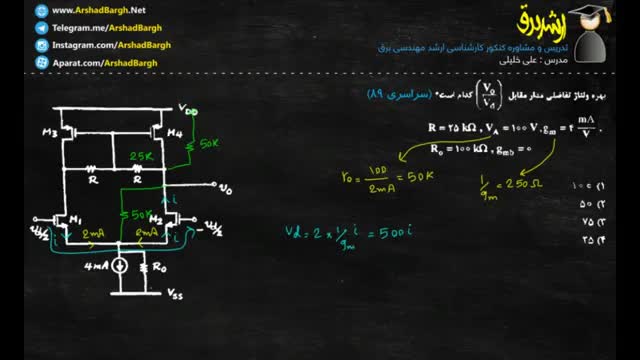 www.ArshadBargh.Net
Telegram.me/ArshadBargh
Instagram.com/ArshadBargh
Aparat.com/ArshadBargh
ارشد برق
تدریس و مشاوره کنکور کارشناسی ارشد مهندسی برق
مدرس : علی خلیلی
بهره ولتاژ تفاضلی مدار مقابل (Vo/Vd) کدام است؟ (سراسری ۸۹)
R = ۲۵ kΩ, VA = ۱۰۰ V, gm = ۴ mA/V .
Ro = ۱۰۰ kΩ, gmb = ۰
۱) ۱۰۰
۲) ۵۰
۳) ۷۵
۴) ۲۵
ro = 100/2mA = 50K
1/gm = 250Ω
Vd = 2 × 1/gm i = 500i
VDD
M3
M4
50K
25K
R
R
vo
50K
M1
M2
Vd/2
i
2mA
2mA
i
i
-Vd/2
4mA
Ro
VSS